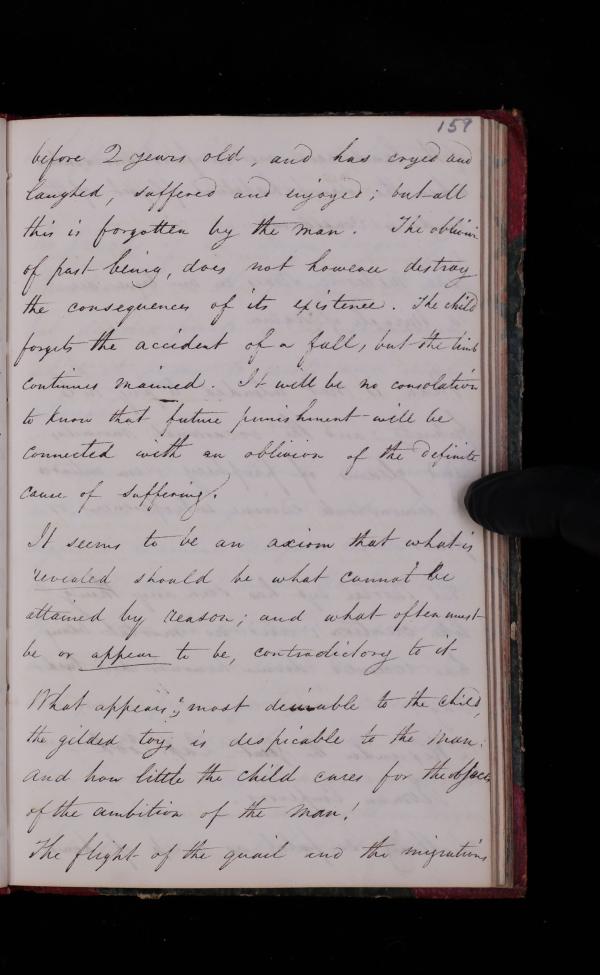 159
before 2 years old, and has cryed and
laughed, suffered and enjoyed; but all
this is forgotten by the man. The oblivion
of past being, does not however destroy
the consequences of its existence. The child
forgets the accident of a fall, but the limb
continues maimed. It will be no consolation
to know that future punishment will be
connected with an oblivion of the definite
cause of suffering.
It seems to be an axiom that what is
revealed should be what cannot be
attained by reason; and what often must
be or appear to be, contradictory to it
What appears most desirable to the child,
the gilded toy, is despicable to the man:
and how little the child cares for the objects
of the ambition of the man!
The flight of the quail and the migrations